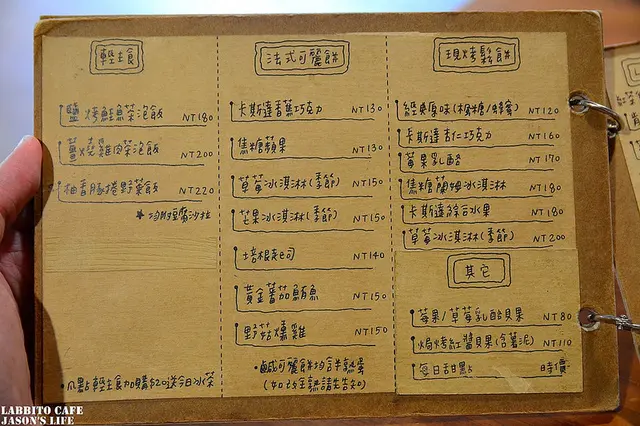 輕主食
鹽烤鮭魚茶泡飯 NT180
薑燒雞肉茶泡飯 NT200
柚香豚捲野菜飯 NT220
★均附豆腐沙拉
•凡點輕主食加購$20送今日冰茶
法式可麗餅
卡斯達香蕉巧克力 NT130
焦糖蘋果 NT130
草莓冰淇淋(季節) NT150
芒果冰淇淋(季節) NT150
培根起司 NT140
黃金蕃茄鮪魚 NT150
野菇燻雞 NT150
•鹹可麗餅均含半熟蛋
(如改全熟請先告知)
現烤鬆餅
經典原味(楓糖/蜂蜜) NT120
卡斯達杏仁巧克力 NT160
莓果乳酪 NT170
焦糖蘭姆冰淇淋 NT180
卡斯達綜合水果 NT180
草莓冰淇淋(季節) NT200
其它
莓果/草莓乳酪貝果 NT80
焗烤紅醬貝果(含薯泥) NT110
每日甜點 時價
LABBITO CAFE
JASON'S LIFE